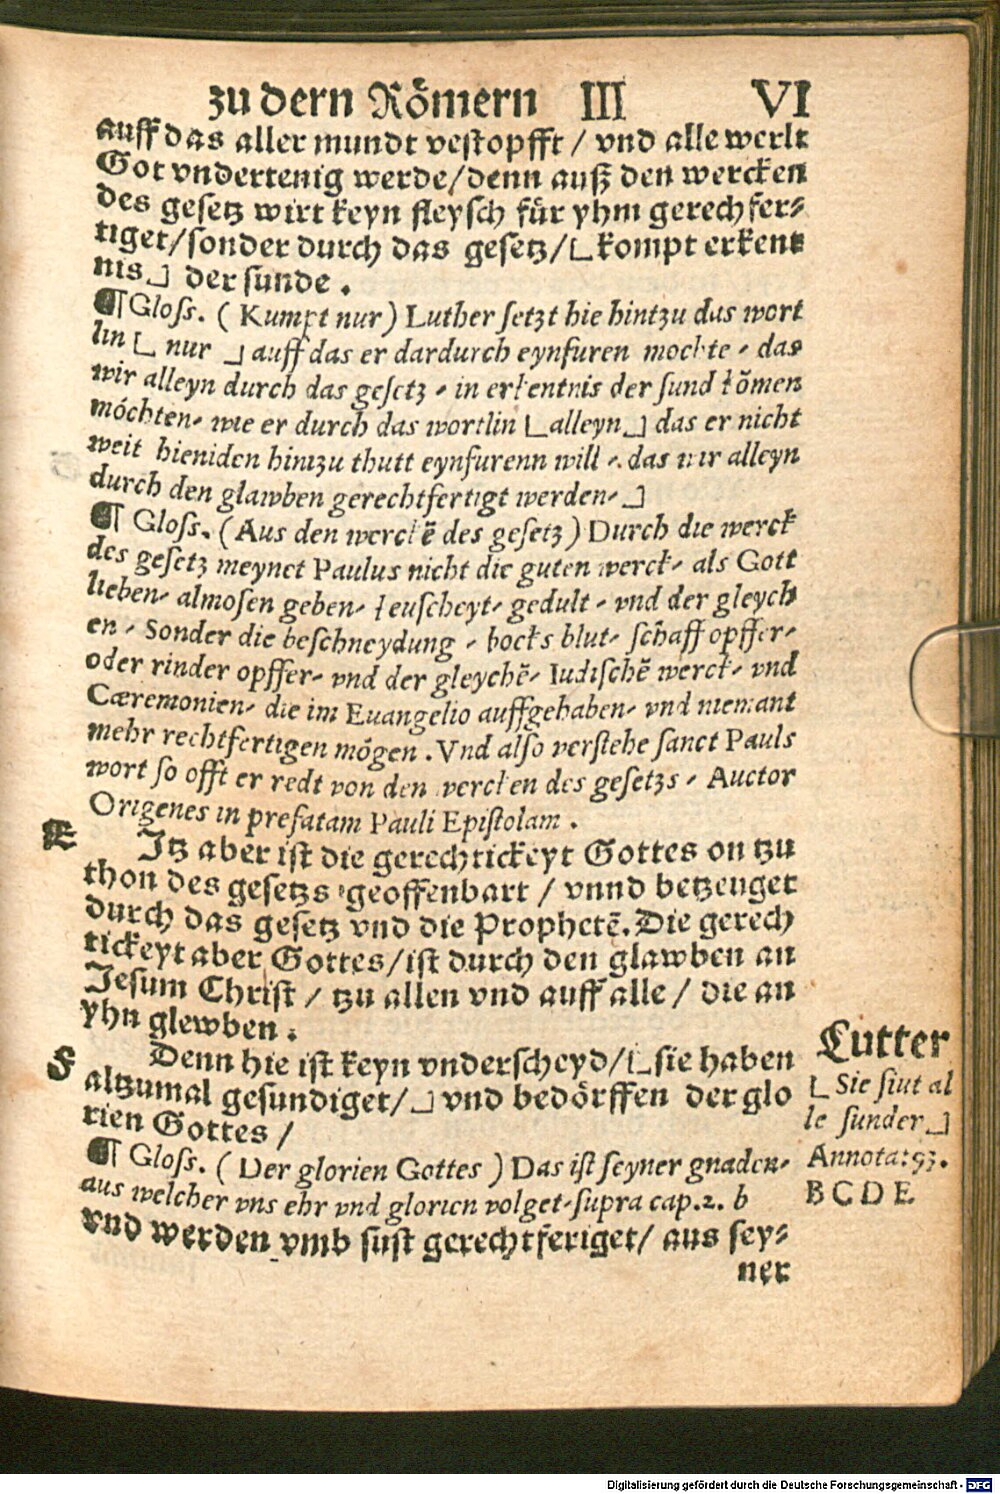 zu dern Römern III VI
auff das aller mundt vestopfft / vnd alle werlt
Got vndertenig werde/denn auß den wercken
des gesetz wirt keyn fleysch für yhm gerechfer⸗
tiget/sonder durch das gesetz/⌊kompt erkent
nis⌋ der sunde .
¶ Gloss. ( Kumpt nur ) Luther setzt hie hintzu das wort
lin ⌊ nur ⌋ auff das er dardurch eynfuren mochte ⸗ das
wir alleyn durch das gesetz ⸗ in erkentnis der sund kõmen
möchten⸗ wie er durch das wortlin ⌊alleyn⌋ das er nicht
weit hieniden hintzu thutt eynfurenn will ⸗ das wir alleyn
durch den glawben gerechtfertigt werden⸗⌋
¶ Gloss. (Aus den werckẽ des gesetz ) Durch die werck
des gesetz meynet Paulus nicht die guten werck⸗ als Gott
lieben⸗ almosen geben⸗ keuscheyt⸗ gedult ⸗ vnd der gleych
en ⸗ Sonder die beschneydung ⸗ bocks blut⸗ schaff opffer⸗
oder rinder opffer⸗ vnd der gleychẽ⸗ Iudischẽ werck⸗ vnd
Cæremonien⸗ die im Euangelio auffgehaben⸗ vnd niemant
mehr rechtfertigen mögen . Vnd also verstehe sanct Pauls
wort so offt er redt von den wercken des gesetzs ⸗ Auctor
Origenes in prefatam Pauli Epistolam .
E
Itz aber ist die gerechtickeyt Gottes on tzu
thon des gesetzs geoffenbart / vnnd betzeuget
durch das gesetz vnd die Prophetẽ. Die gerech
tickeyt aber Gottes/ist durch den glawben an
Jesum Christ / tzu allen vnd auff alle / die an
yhn glewben .
F
Denn hie ist keyn vnderscheyd/⌊sie haben
altzumal gesundiget/⌋ vnd bedörffen der glo
rien Gottes /
Lutter
⌊ Sie siut al
le sunder⌋
Annota: 93.
B C D E
¶ Gloss. ( Der glorien Gottes ) Das ist seyner gnaden⸗
aus welcher vns ehr vnd glorien volget⸗supra cap.2. b
vnd werden vmb sust gerechtferiget/ aus sey⸗
ner
Digitalisierung gefördert durch die Deutsche Forschungsgemeinschaft - DFG